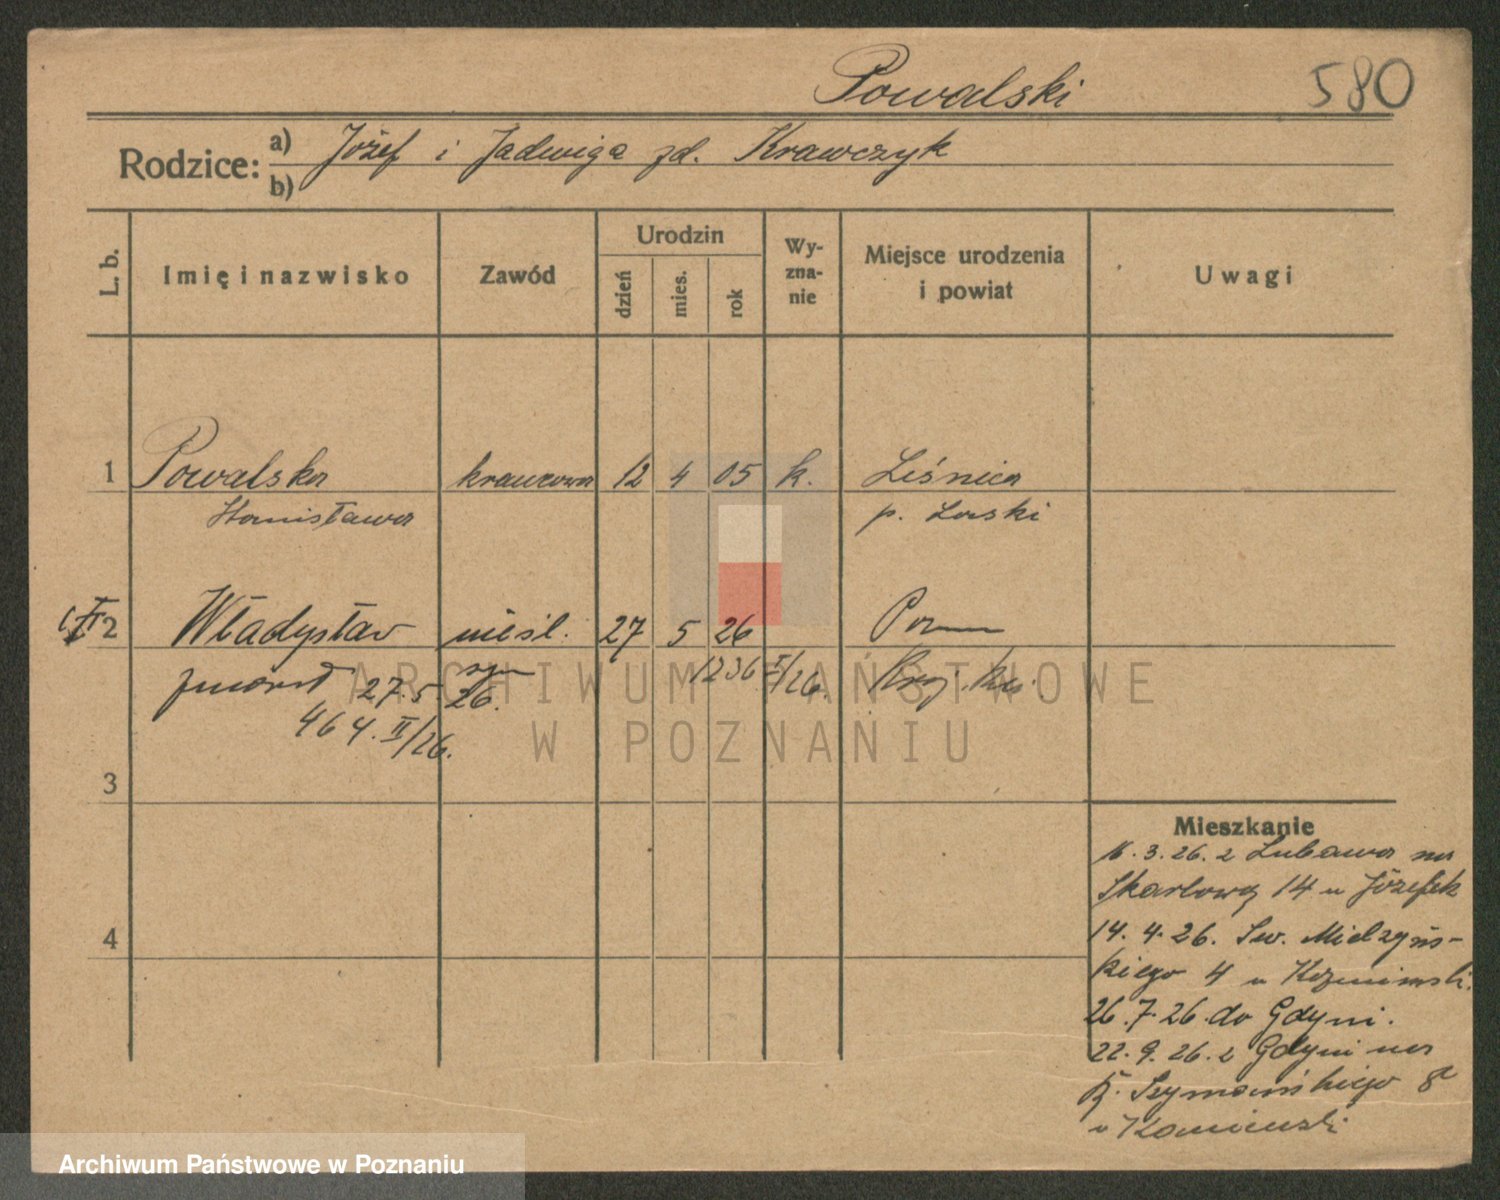 Powalski
580
Rodzice: a) Józef i Jadwiga zd. Krawczyk
b)
L. b.
Imię i nazwisko
Zawód
Urodzin
dzień
mies.
rok
Wy-
zna-
nie
Miejsce urodzenia
i powiat
Uwagi
1 Powalska krawcowa 12 4 05 k. Leśnica
Stanisława p. Łaski
2 Władysław nieśl. 27 5 26
syn
zmarł 27.5 26. 1236 I/26.
464. II/26.
3
4
Mieszkanie
16.3.26. z Lubawa na
Skarbową 14 u Józefek
14.4.26. Sew. Mielżyń-
skiego 4 u
26.7.26. do Gdyni.
22.9.26. z Gdyni na
Szymańskiego 8
u Kamieński
ARCHIWUM PAŃSTWOWE
W POZNANIU
Archiwum Państwowe w Poznaniu